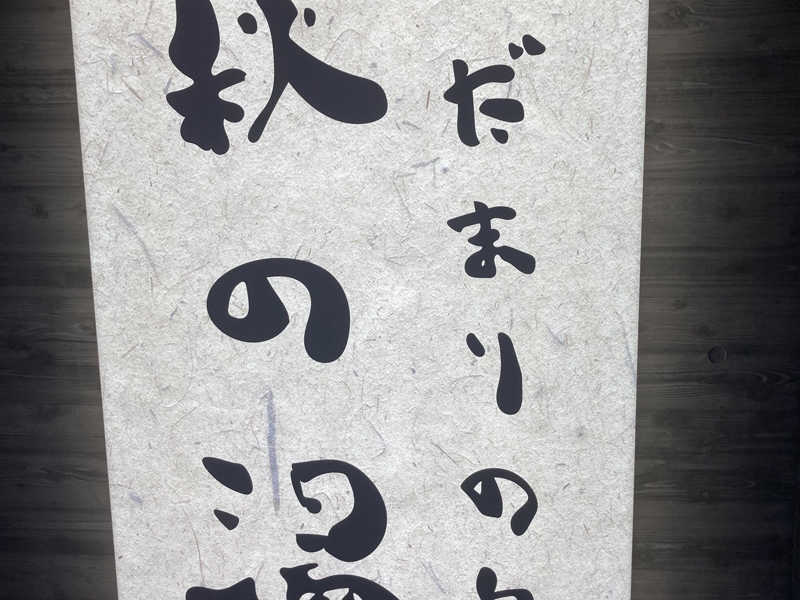 だまりの
秋の湯